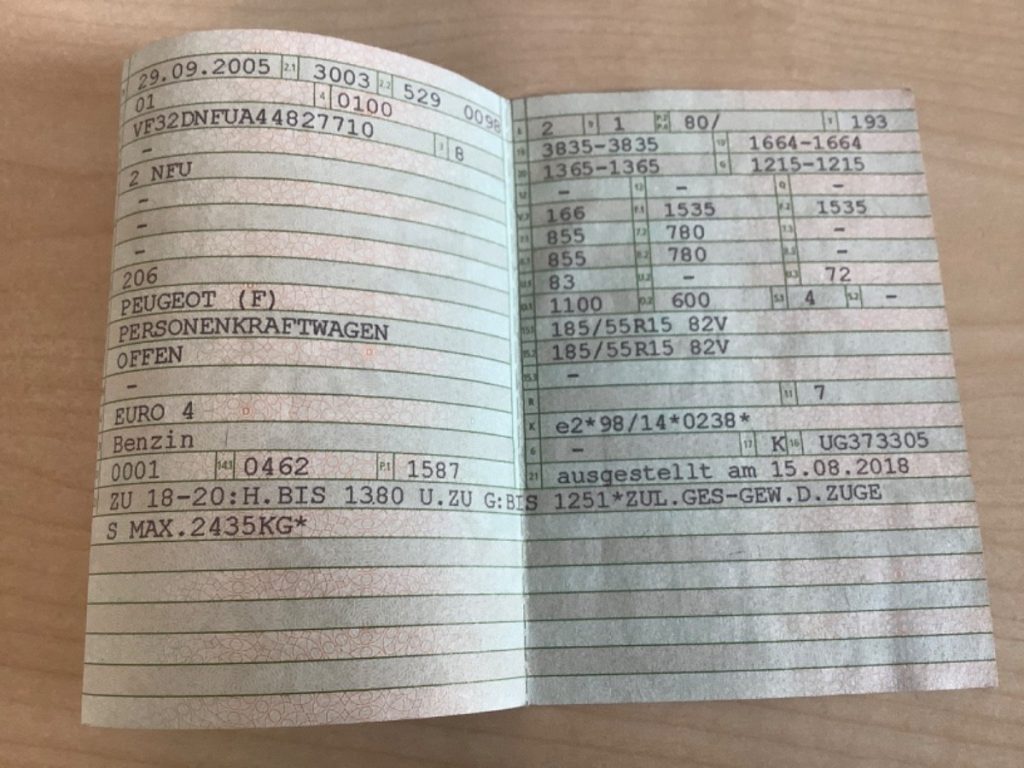 29.09.2005 2.1 3003 2.2 529 0098
01 4 0100
VF32DNFUA44827710 3 8
-
2 NFU
-
-
-
206
PEUGEOT (F)
PERSONENKRAFTWAGEN
OFFEN
-
EURO 4
Benzin
0001 14.1 0462 P.1 1587
ZU 18-20:H.BIS 1380 U.ZU G:BIS 1251*ZUL.GES-GEW.D.ZUGE
S MAX.2435KG*
2 9 1 P.2 P.4 80/ T 193
18 3835-3835 19 1664-1664
20 1365-1365 G 1215-1215
12 - 13 - Q -
V.7 166 F.1 1535 F.2 1535
7.1 855 7.2 780 7.3 -
8.1 855 8.2 780 8.3 -
U.1 83 U.2 - U.3 72
O.1 1100 O.2 600 S.1 4 S.2 -
15.1 185/55R15 82V
15.2 185/55R15 82V
15.3 -
R 11 7
K e2*98/14*0238*
6 - 17 K 16 UG373305
21 ausgestellt am 15.08.2018